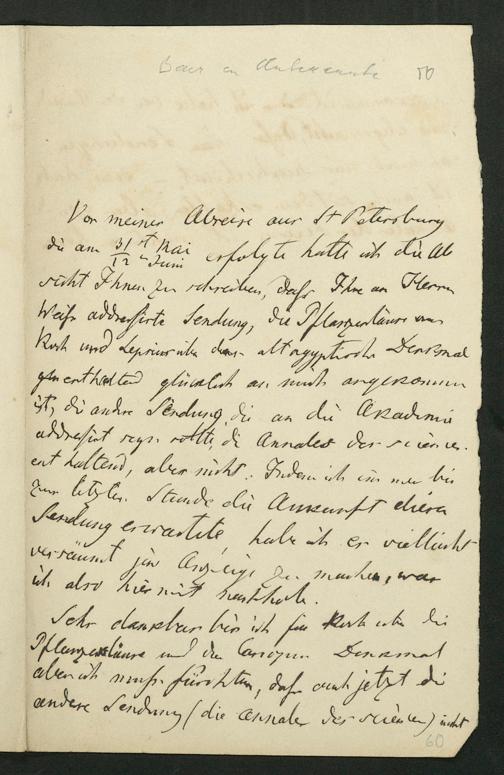 Baer an Unbekannt 50
Vor meiner Abreise aus St Petersburg
die am 31st Mai / 12 Juni erfolgte hatte ich die Ab
sicht Ihnen zu schreiben, daß Ihre an Herrn
Weiß addressirte Sendung, die Pflanzenläuse von
Koch und Lepsius über altägyptische Denkmal
enthaltend glücklich an mich angekommen
ist, die andre Sendung die an die Akademie
addressirt seyn sollte, die Annales des scienc.
enthaltend, aber nicht. Indem ich immer bis
zur letzten Stunde die Ankunft dieser
Sendung erwartete, habe ich es vielleicht
versäumt jene Anzeige zu machen, was
ich also hiermit nachhole.
Sehr dankbar bin ich für Koch über die
Pflanzenläuse und die Denkmal
aber ich muß fürchten, daß auch jetzt die
andere Sendung (die Annales des sciences) nicht
60